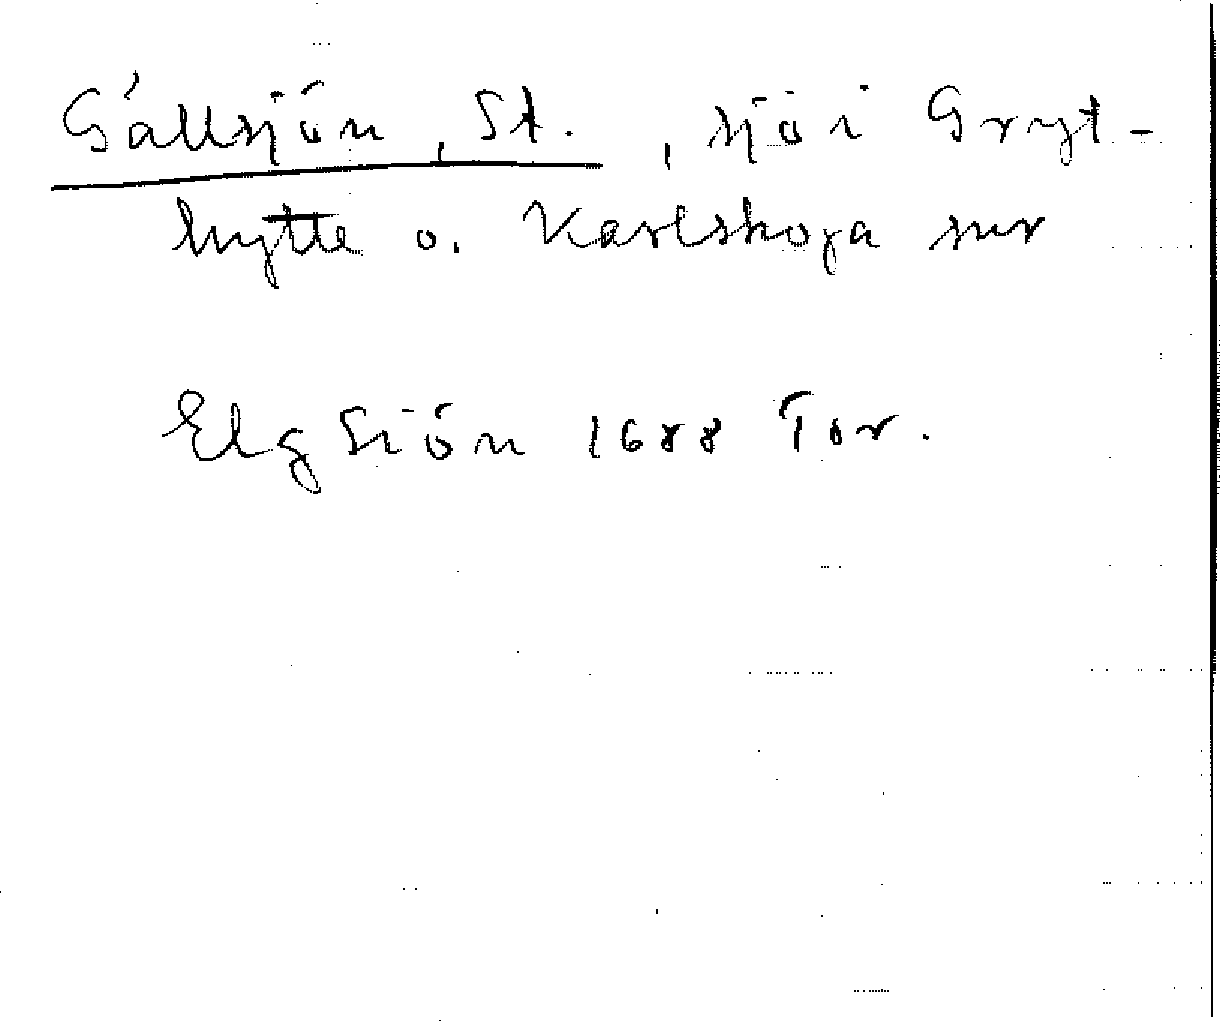 Gällsjön, St., sjö i Gryt-
hytte o. Karlskoga snr
Elg Siön 1688 Tor.